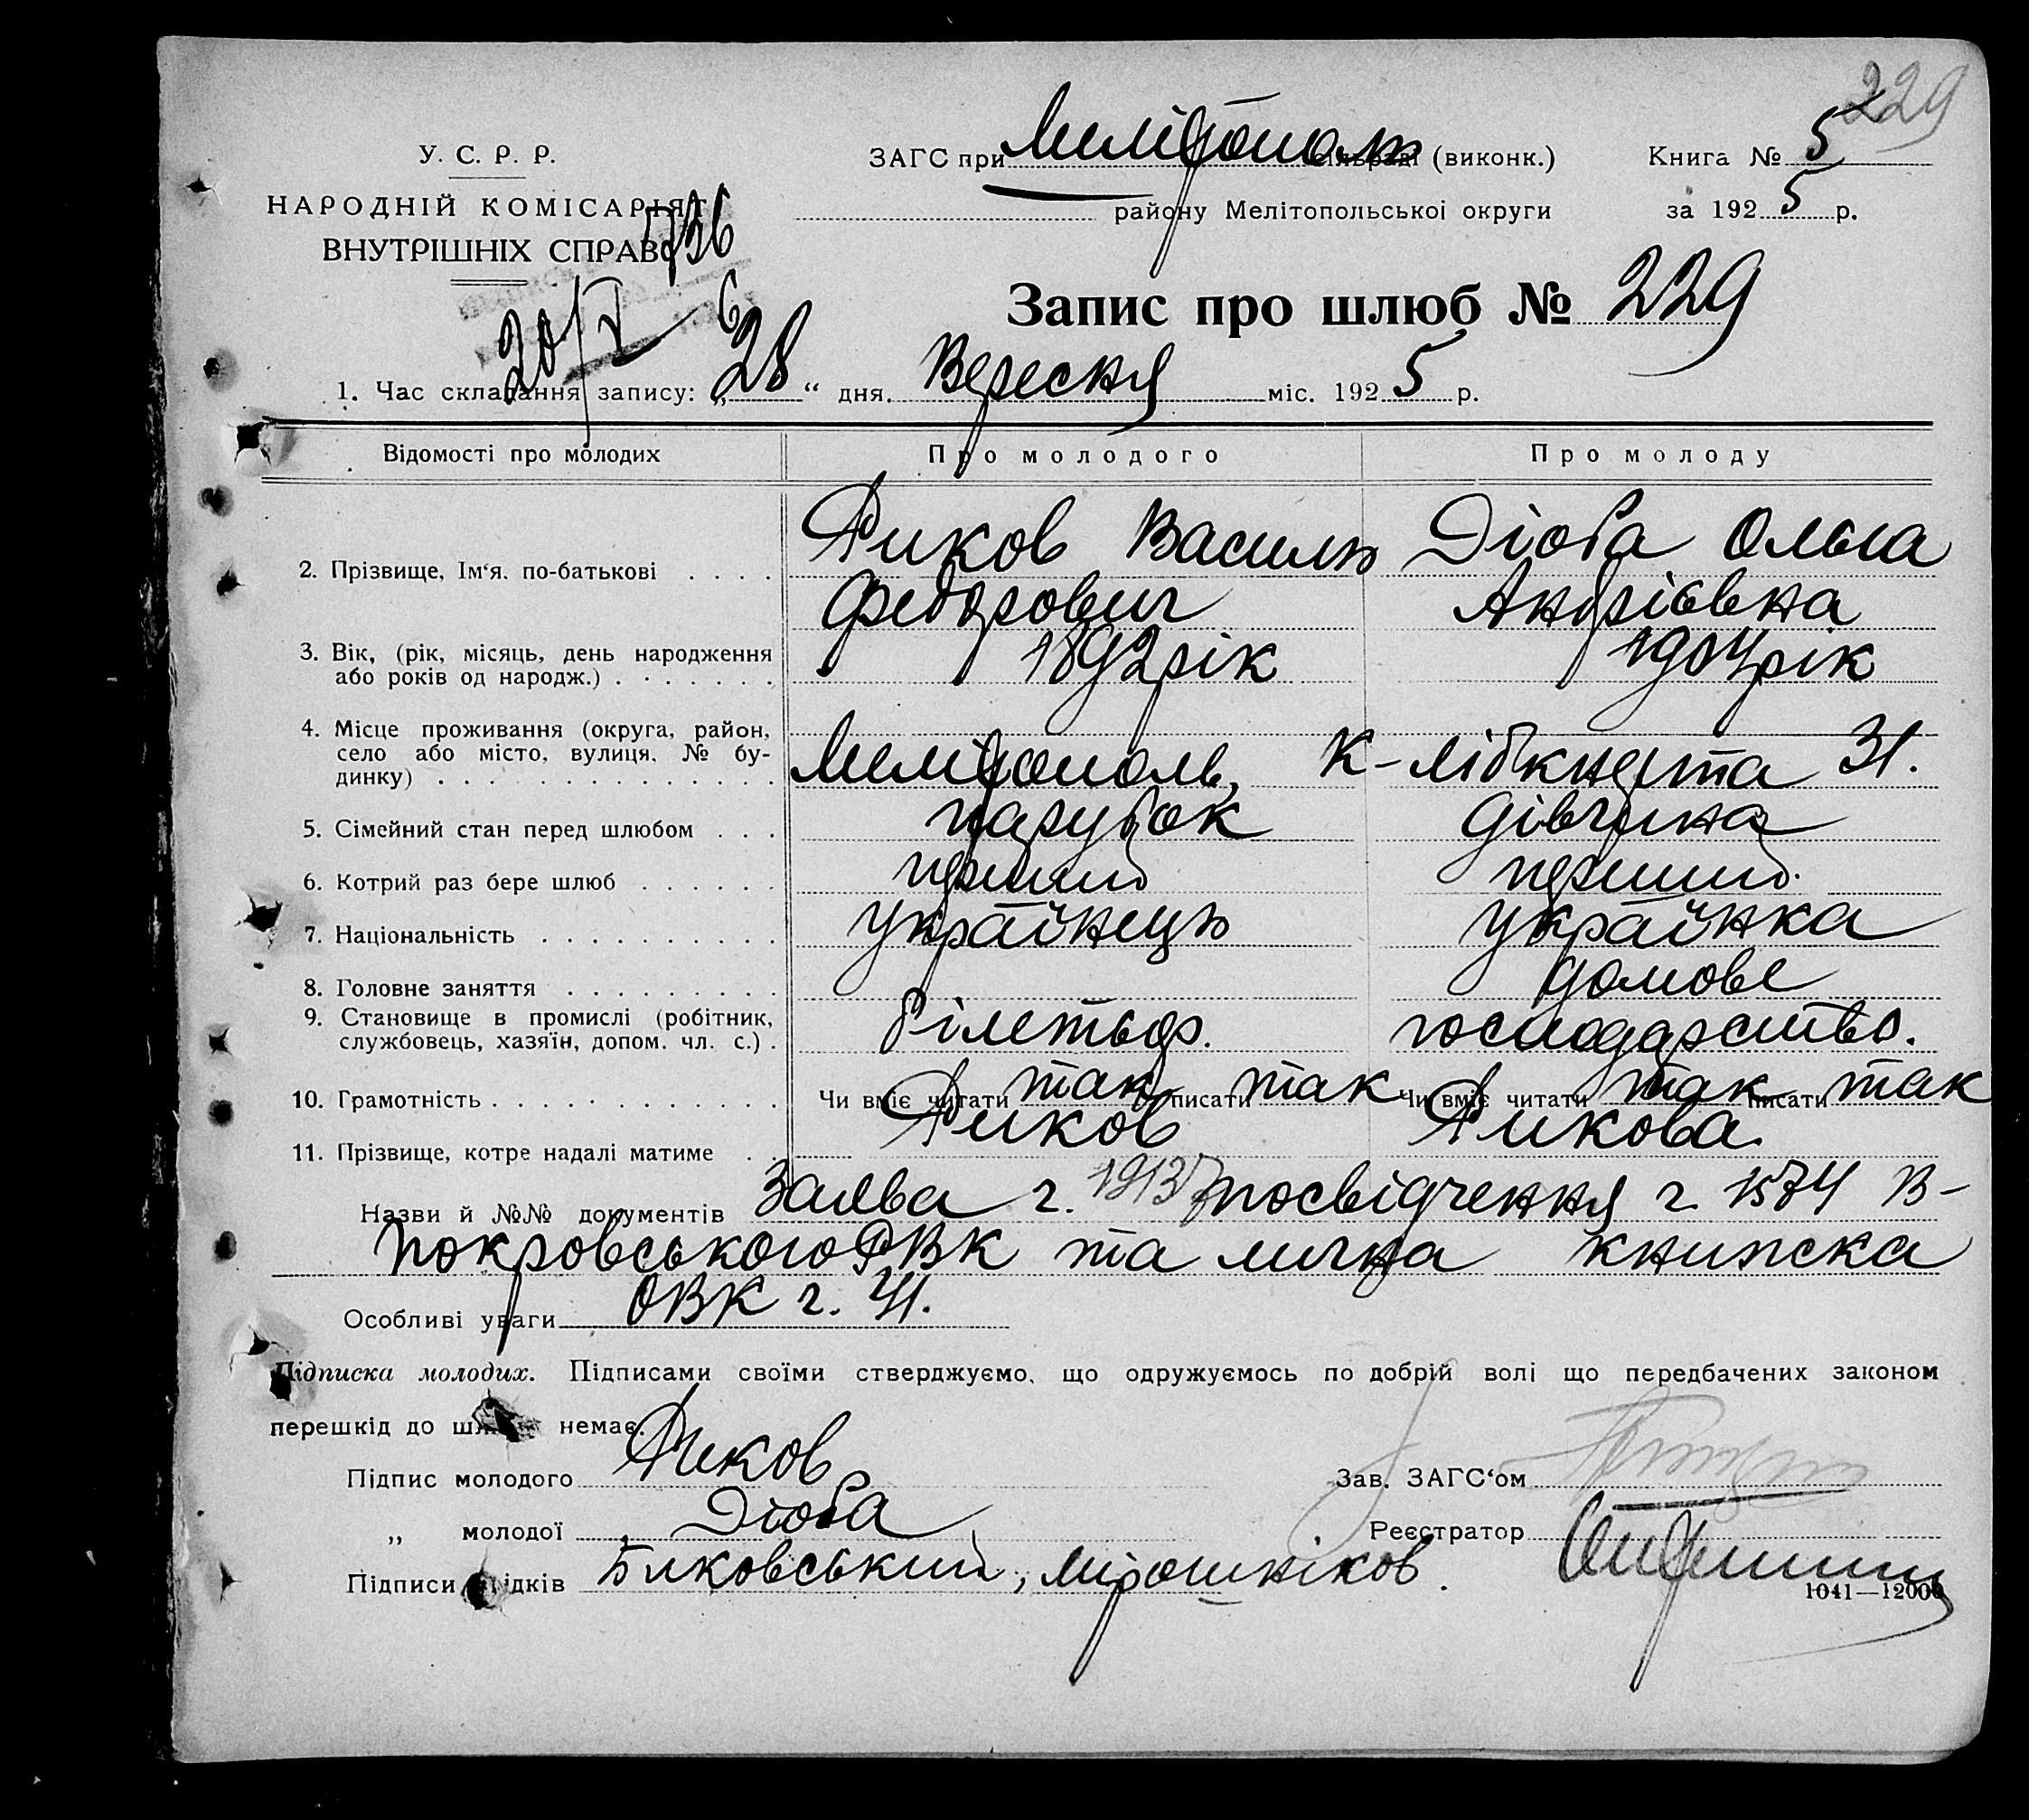 229
У. С. Р. Р.
НАРОДНІЙ КОМІСАРІЯТ
ВНУТРІШНІХ СПРАВ
ЗАГС при Мелітополь сільраді (виконк.) Книга № 5
району Мелітопольської округи за 1925 р.
20/V 6
Запис про шлюб № 229
1. Час складання запису: „28“ дня Вересня міс. 1925 р.
Відомості про молодих Про молодого Про молоду
2. Прізвище, Ім‘я, по-батькові Риков Василь Дзюба Ольга
Федорович Андріївна
3. Вік, (рік, місяць, день народження 1892 рік 1904 рік
або років од народж.)
4. Місце проживання (округа, район,
село або місто, вулиця, № бу- Мелітополь, К-Лібкнехта 31.
динку)
5. Сімейний стан перед шлюбом парубок дівчина
6. Котрий раз бере шлюб перший перший.
7. Національність українець українка
8. Головне заняття домове
9. Становище в промислі (робітник, білетьор. господарство.
службовець, хазяїн, допом. чл. с.)
10. Грамотність Чи вміє читати так писати так Чи вміє читати так писати так
11. Прізвище, котре надалі матиме Риков Рикова.
Назви й №№ документів Заява ч. 1913 посвідчення ч. 1574 В-
Покровського РВК та лична книжка
Особливі уваги ОВК ч. 41.
Підписка молодих. Підписами своїми стверджуємо, що одружуємось по добрій волі що передбачених законом
перешкід до шлюбу немає.
Підпис молодого Риков
Зав. ЗАГС‘ом
„ молодої Дзюба
Реєстратор
Підписи свідків Биковський, Мірошніков.
1041—12000